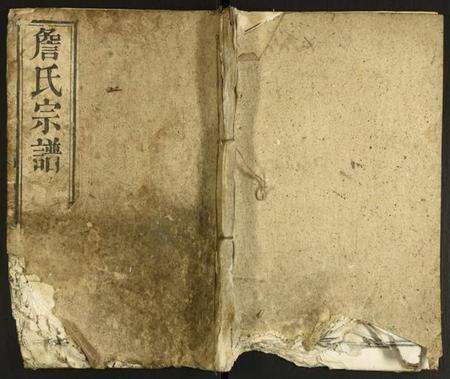 詹氏宗譜